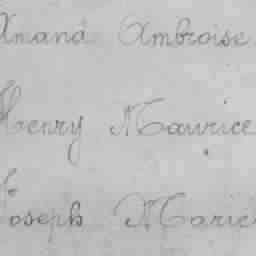 Amand Ambroise
Henry Maurice
Joseph Marie